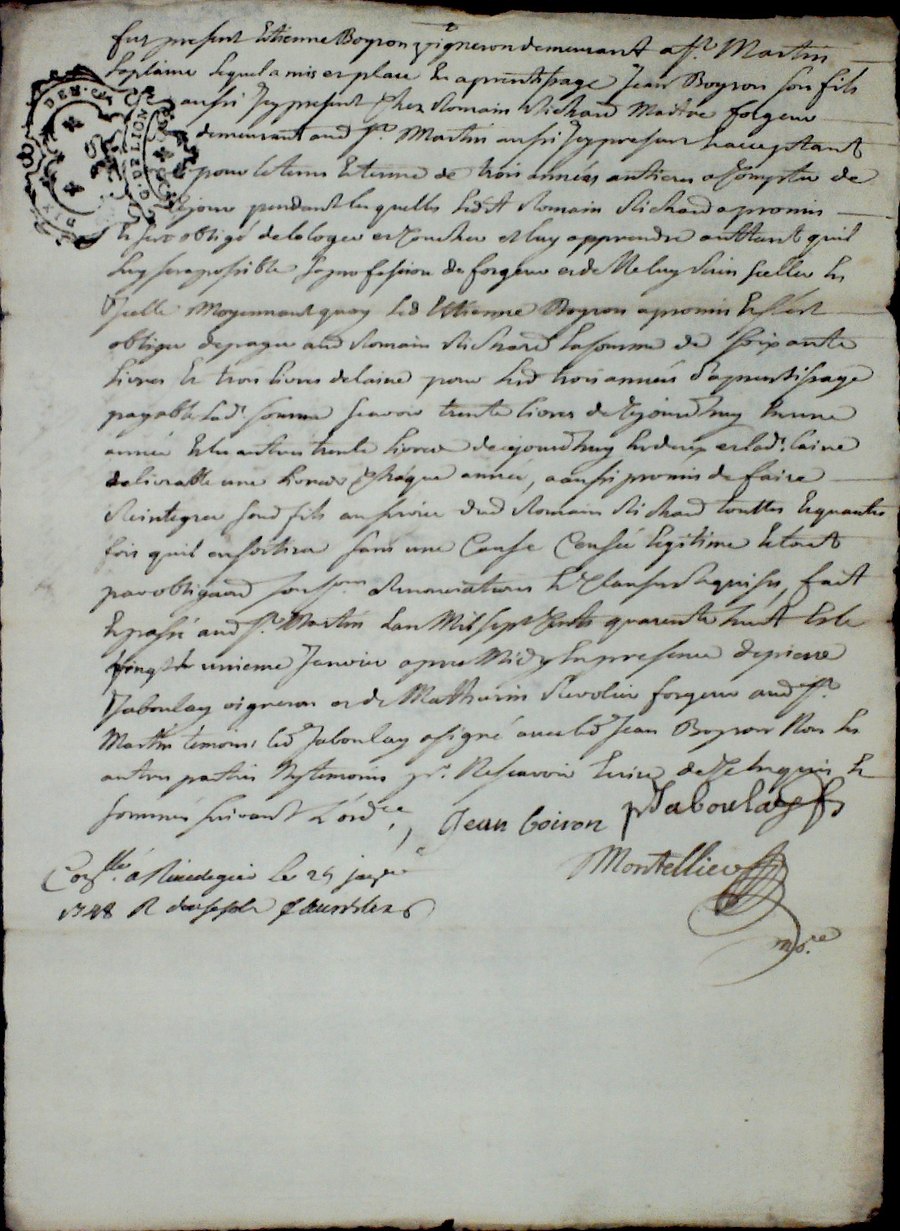 fut present Estienne Boyron vigneron demeurant a St. Martin
laplaine lequel a mis et place En aprentissage Jean Boyron son fils
aussi Icy present Chez Romain Richard Maitre forgeur
demeurant aud St. Martin aussi Icy present Et acceptant
pour le tems Et terme de trois années antieres a Compter de
cejour pendant lesquelles led.t Romain Richard a promis
Et sest obligé de le loger et Coucher et luy apprendre auttant quil
luy sera possible sa profession de forgeur et de Ne luy Rien Celler En
Icelle Moyennant quoy led Estienne Boyron a promis Et sest
obligé de payer aud Romain Richard la somme de soixante
Livres Et trois livres de laine pour lesd trois années d'aprentissage
payable lad. somme scavoir trente livres de cejourdhuy En une
année Et les autres trente Livres de cejourdhuy En deux et lad. laine
delivrable une Livre Chaque année, a aussi promis de faire
Reintegrer sond fils au service dud Romain Richard touttes Et quantes
fois quil en sortira sans une Cause Censée legitime Et tout
par oblig.
Renonciations Et Clauses Requises, fait
Et passé aud St. Martin Lan Mil sept Cents quarente huit Et le
vingt Et unieme Janvier apres Midy En presence de pierre
Jaboulay vigneron et de Mathurin Revolier forgeur aud St.
Martin temoins, led Jaboulay a signé avec led Jean Boyron Non les
autres parties Ny temoins pr. Ne scavoir Ecrire de Ce Enquis Et
sommés suivant L'ord.ce,
Jean boiron pJaboulay
Montellier
Con.llé á Rivedegier le 25 janv.
1748 R douze sols
n.re
DEN.ers
G. DE LION
DIX